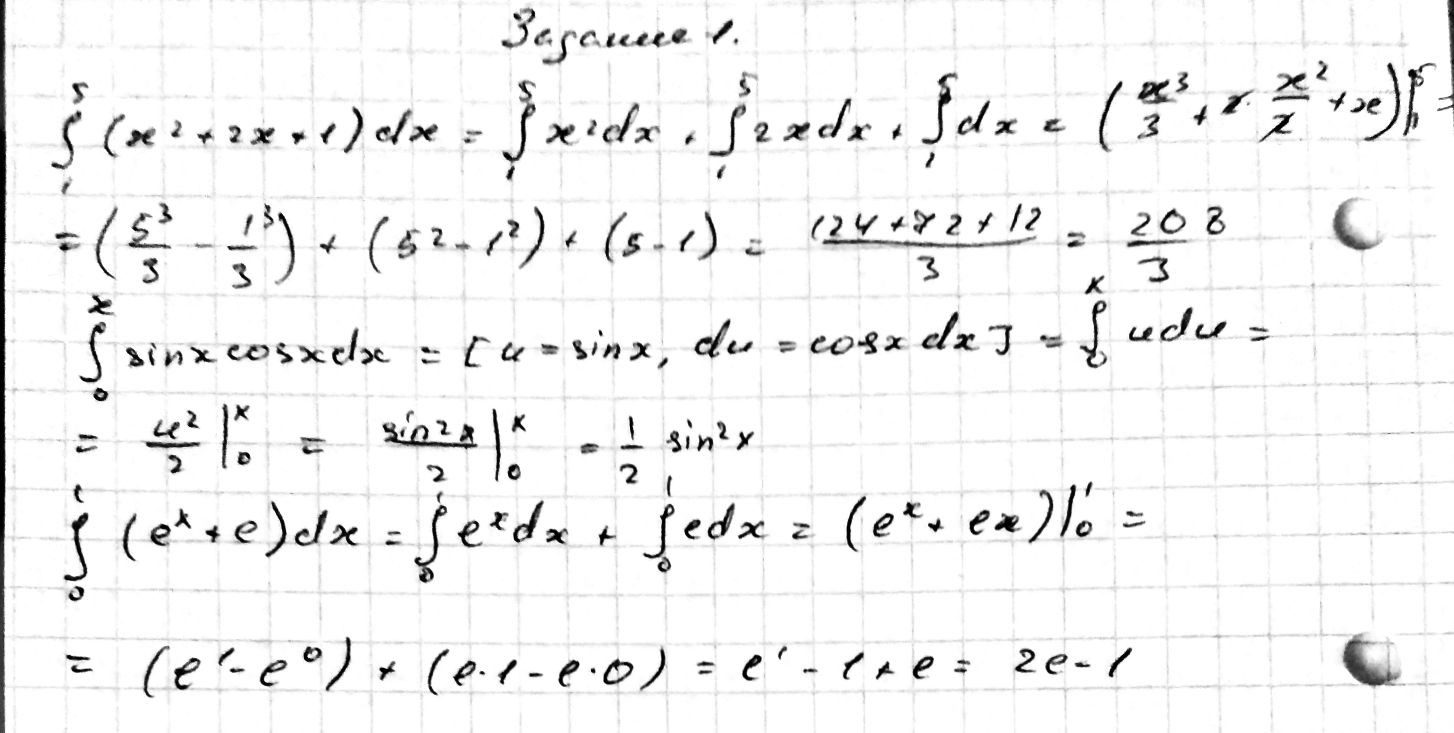 Задание 1.
∫₁⁵ (x² + 2x + 1) dx = ∫₁⁵ x² dx + ∫₁⁵ 2x dx + ∫₁⁵ dx = (x³/3 + 2 · x²/2 + x)|₁⁵ =
= (5³/3 - 1³/3) + (5² - 1²) + (5 - 1) = (124 + 72 + 12)/3 = 208/3
∫₀ˣ sin x cos x dx = [u = sin x, du = cos x dx] = ∫₀ˣ u du =
= u²/2 |₀ˣ = sin²x/2 |₀ˣ = 1/2 sin²x
∫₀¹ (eˣ + e) dx = ∫₀¹ eˣ dx + ∫₀¹ e dx = (eˣ + ex)|₀¹ =
= (e¹ - e⁰) + (e·1 - e·0) = e¹ - 1 + e = 2e - 1